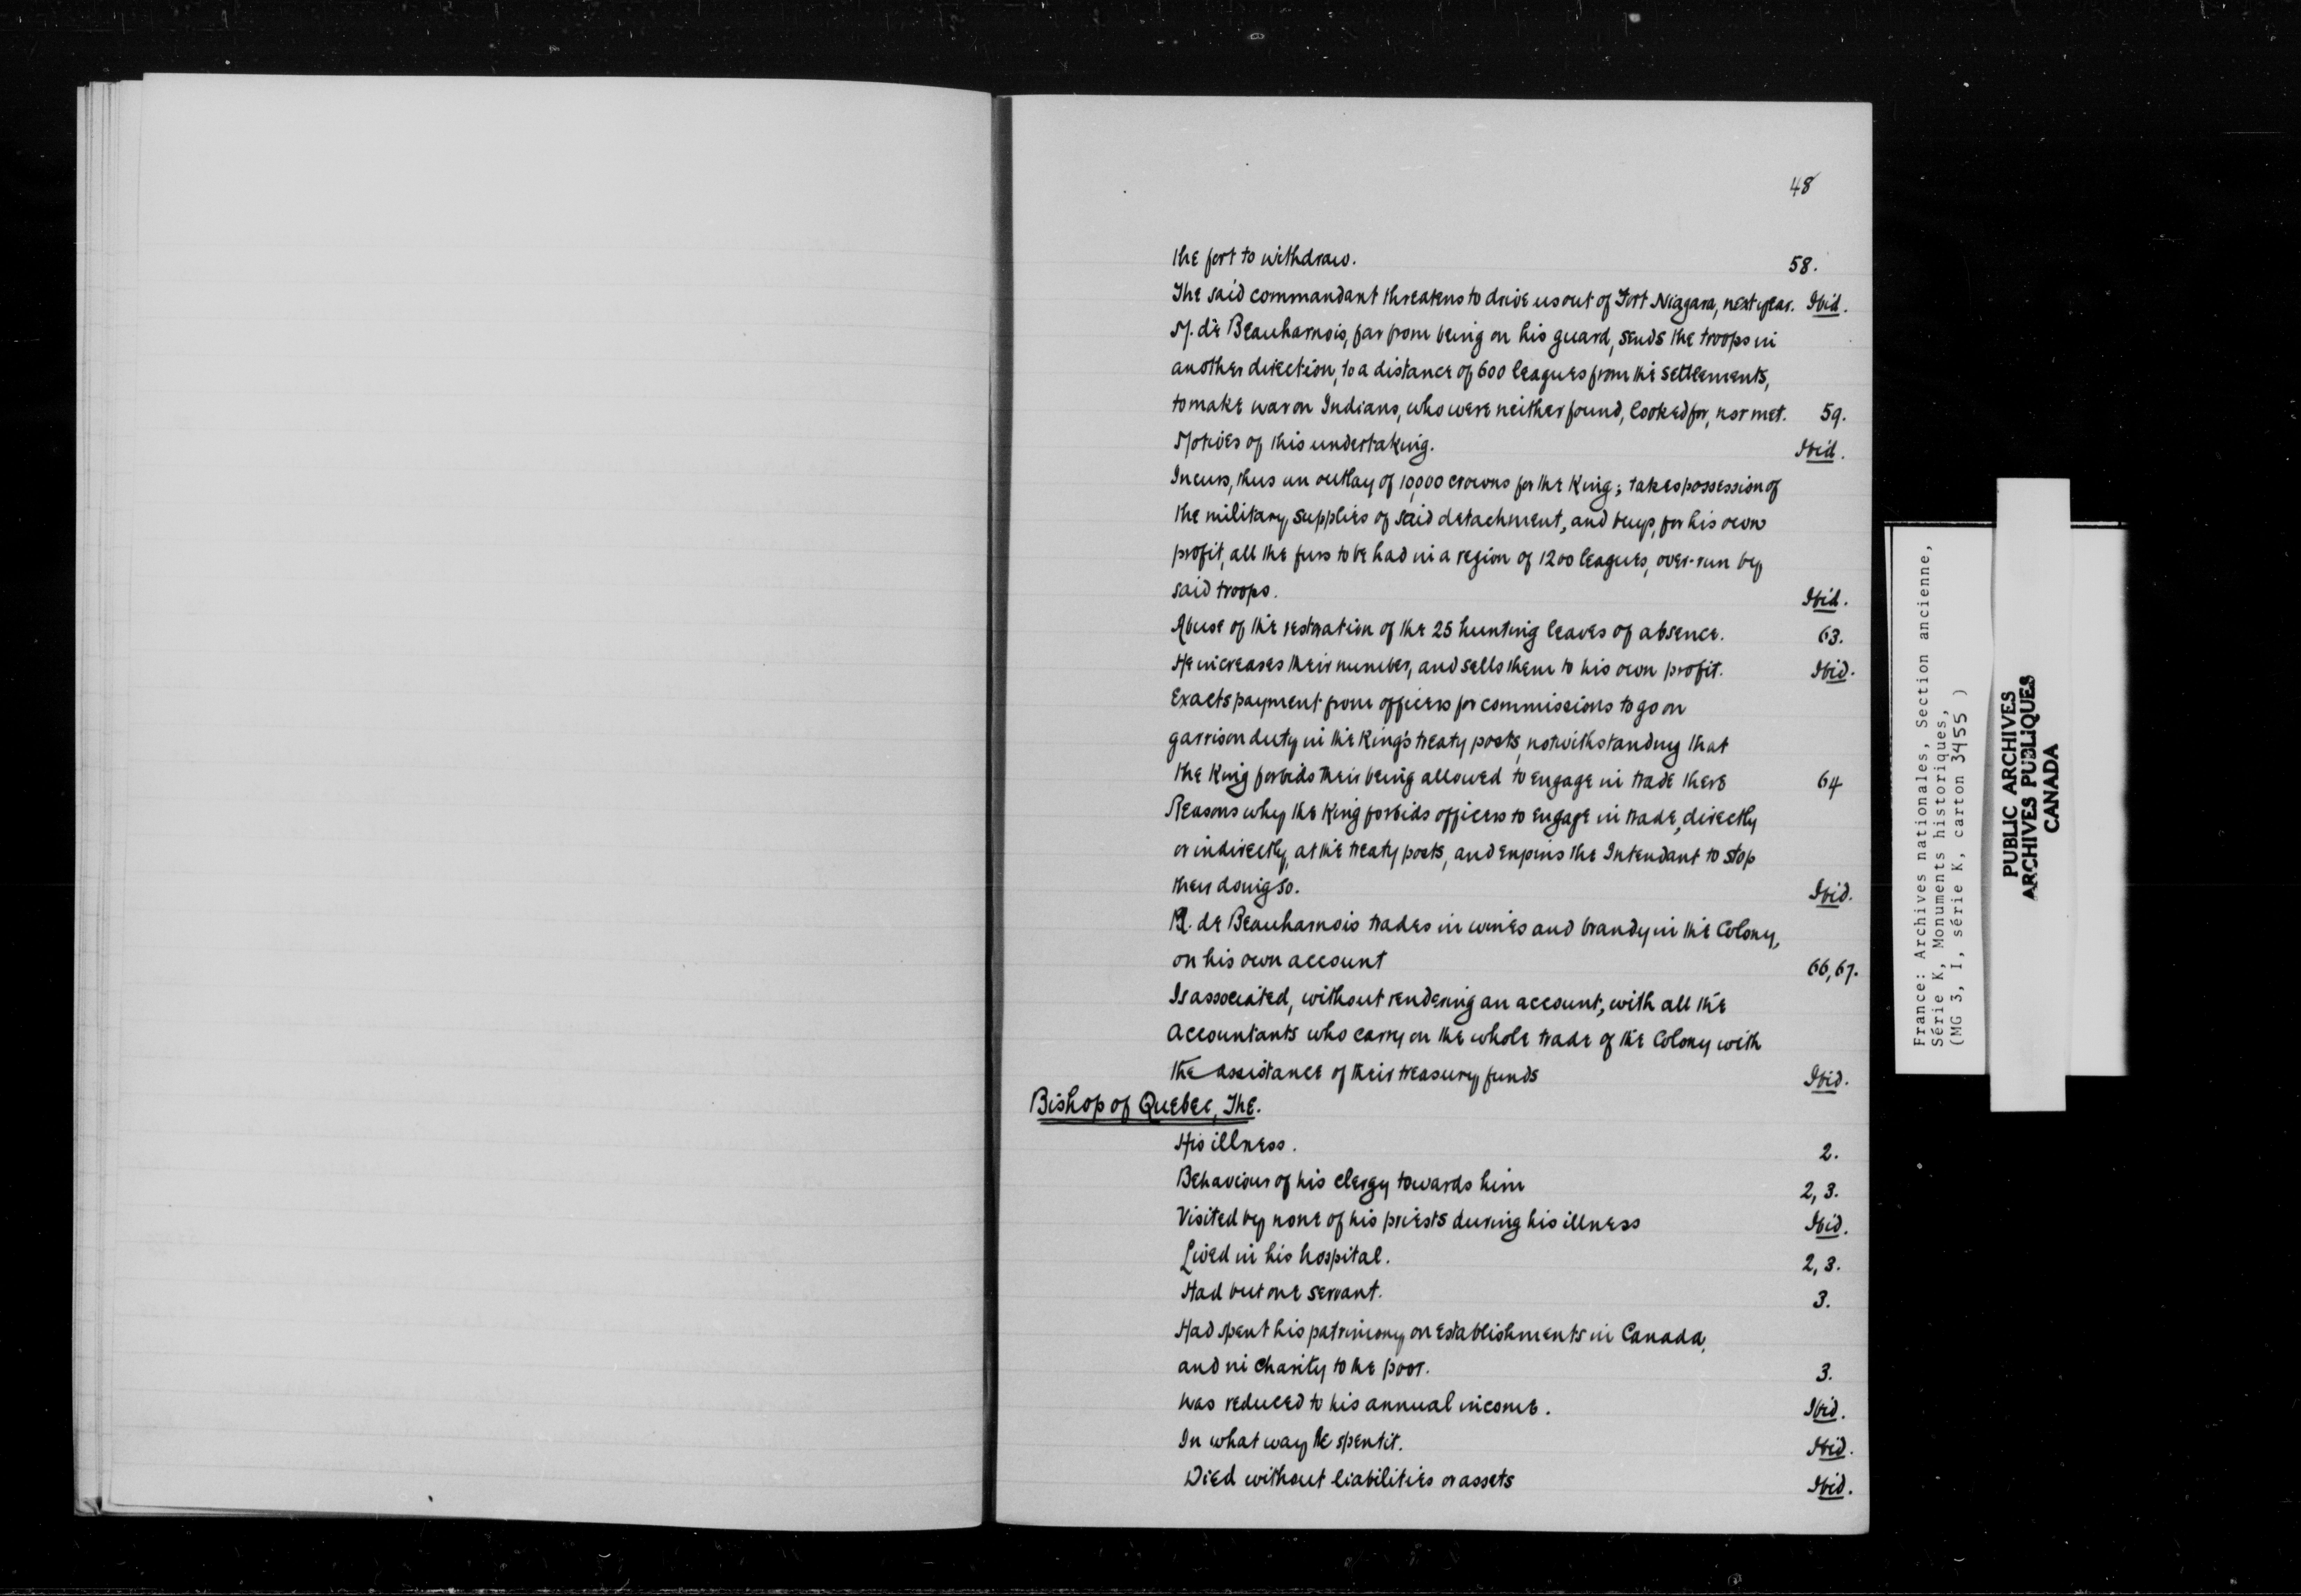 48
the fort to withdraw. 58.
The said commandant threatens to drive us out of Fort Niagara, next year. Ibid.
M. de Beauharnois, far from being on his guard, sends the troops in
another direction, to a distance of 600 leagues from the settlements,
to make war on Indians, who were neither found, looked for, nor met. 59.
Motives of this undertaking. Ibid.
Incurs, thus an outlay of 10,000 crowns for the King; takes possession of
the military supplies of said detachment, and buys, for his own
profit, all the furs to be had in a region of 1200 leagues, over-run by
said troops. Ibid.
Abuse of the restoration of the 25 hunting leaves of absence. 63.
He increases their number, and sells them to his own profit. Ibid.
Exacts payment from officers for commissions to go on
garrison duty in the King's treaty posts, notwithstanding that
the King forbids their being allowed to engage in trade there 64
Reasons why the King forbids officers to engage in trade, directly
or indirectly, at the treaty posts, and enjoins the Intendant to stop
their doing so. Ibid.
M. de Beauharnois trades in wines and brandy in the Colony,
on his own account 66, 67.
Is associated, without rendering an account, with all the
Accountants who carry on the whole trade of the Colony with
the assistance of their treasury funds Ibid.
Bishop of Quebec, The.
His illness. 2.
Behaviour of his clergy towards him 2, 3.
Visited by none of his priests during his illness Ibid.
Lived in his hospital. 2, 3.
Had but one servant. 3.
Had spent his patrimony on establishments in Canada,
and in charity to the poor. 3.
Was reduced to his annual income. Ibid.
In what way he spent it. Ibid.
Died without liabilities or assets Ibid.
France: Archives nationales, Section ancienne,
Série K, Monuments historiques,
(MG 3, I, série K, carton 3455 )
PUBLIC ARCHIVES
ARCHIVES PUBLIQUES
CANADA